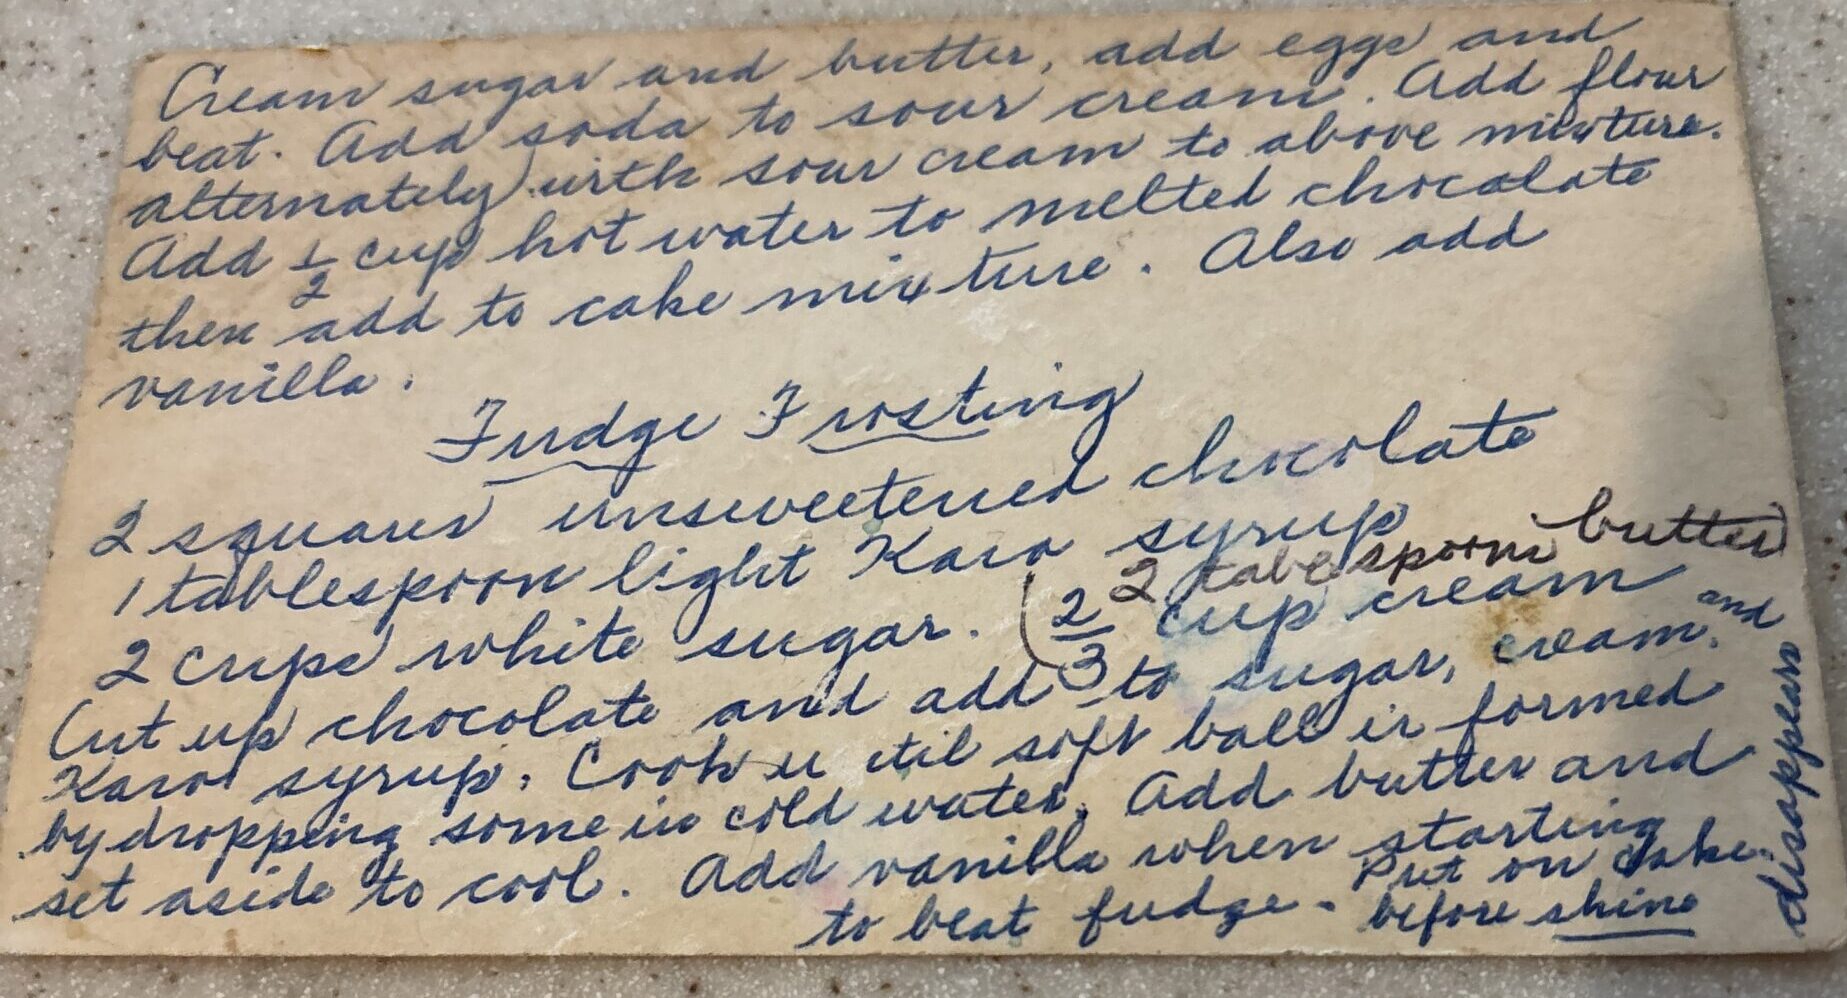 Cream sugar and butter, add eggs and
beat. Add soda to sour cream. Add flour
alternately with sour cream to above mixture.
Add 1/2 cup hot water to melted chocolate
then add to cake mixture. Also add
vanilla.
Fudge Frosting
2 squares unsweetened chocolate
1 tablespoon light Karo syrup
2 tablespoons butter
2 cups white sugar. (2/3 cup cream
Cut up chocolate and add to sugar, cream, and
Karo syrup. Cook until soft ball is formed
by dropping some in cold water. Add butter and
set aside to cool. Add vanilla when starting
to beat fudge. Put on cake
before shine
disappears